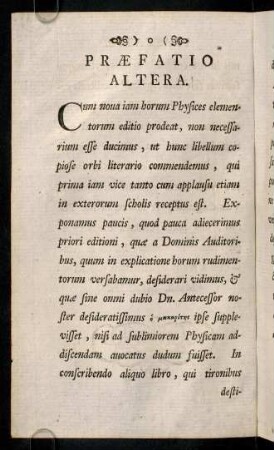 o
PRÆFATIO
ALTERA.
Cum noua iam horum Physices elemen-
torum editio prodeat, non necessa-
rium esse ducimus, ut hunc libellum co-
piose orbi literario commendemus, qui
prima iam vice tanto cum applausu etiam
in exterorum scholis receptus est. Ex-
ponamus paucis, quod pauca adiecerimus
priori editioni, quæ a Dominis Auditori-
bus, quum in explicatione horum rudimen-
torum versabamur, desiderari vidimus, &
quæ sine omni dubio Dn. Antecessor no-
ster desideratissimus ὁ μακαρίτης ipse supple-
visset, nisi ad sublimiorem Physicam ad-
discendam auocatus dudum fuisset. In
conscribendo aliquo libro, qui tironibus
desti-